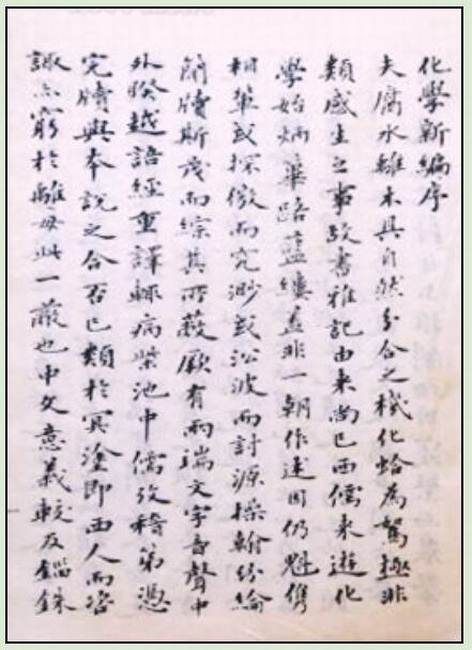 化學新編序
夫腐水離木具自然分合之機化蛤為駕極非
類感生之事故書雅記由來尚已西儒東遊化
學始炳蓽路藍縷蓋非一朝作述因仍魁儁
相隼或探微而究渺或沿波而討源操翰紛綸
簡牘斯茂而綜其所蔽厥有兩端文字音聲中
外睽越語經重譯輒病柴池中儒攷稽第憑
完牘與本說之合否已類於冥塗即西人而咨
諏亦窮於離毋此一蔽也中文意義較及錙銖